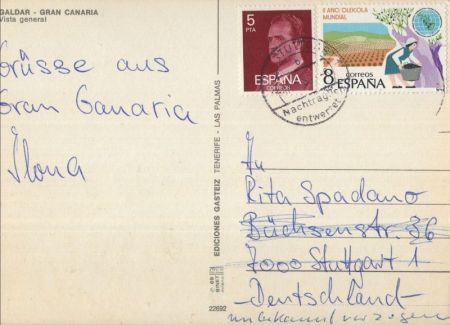 GALDAR - GRAN CANARIA
Vista general
Grüsse aus
Gran Canaria
Ilona
EDICIONES GASTEIZ TENERIFE - LAS PALMAS
22692
5
PTA
ESPAÑA
CORREOS
II AÑO OLEICOLA
MUNDIAL
8
correos
ESPAÑA
Nachträgl.
entwertet
An
Rita Spadano
Büchsenstr. 36
7000 Stuttgart 1
Deutschland
unbekannt verzogen